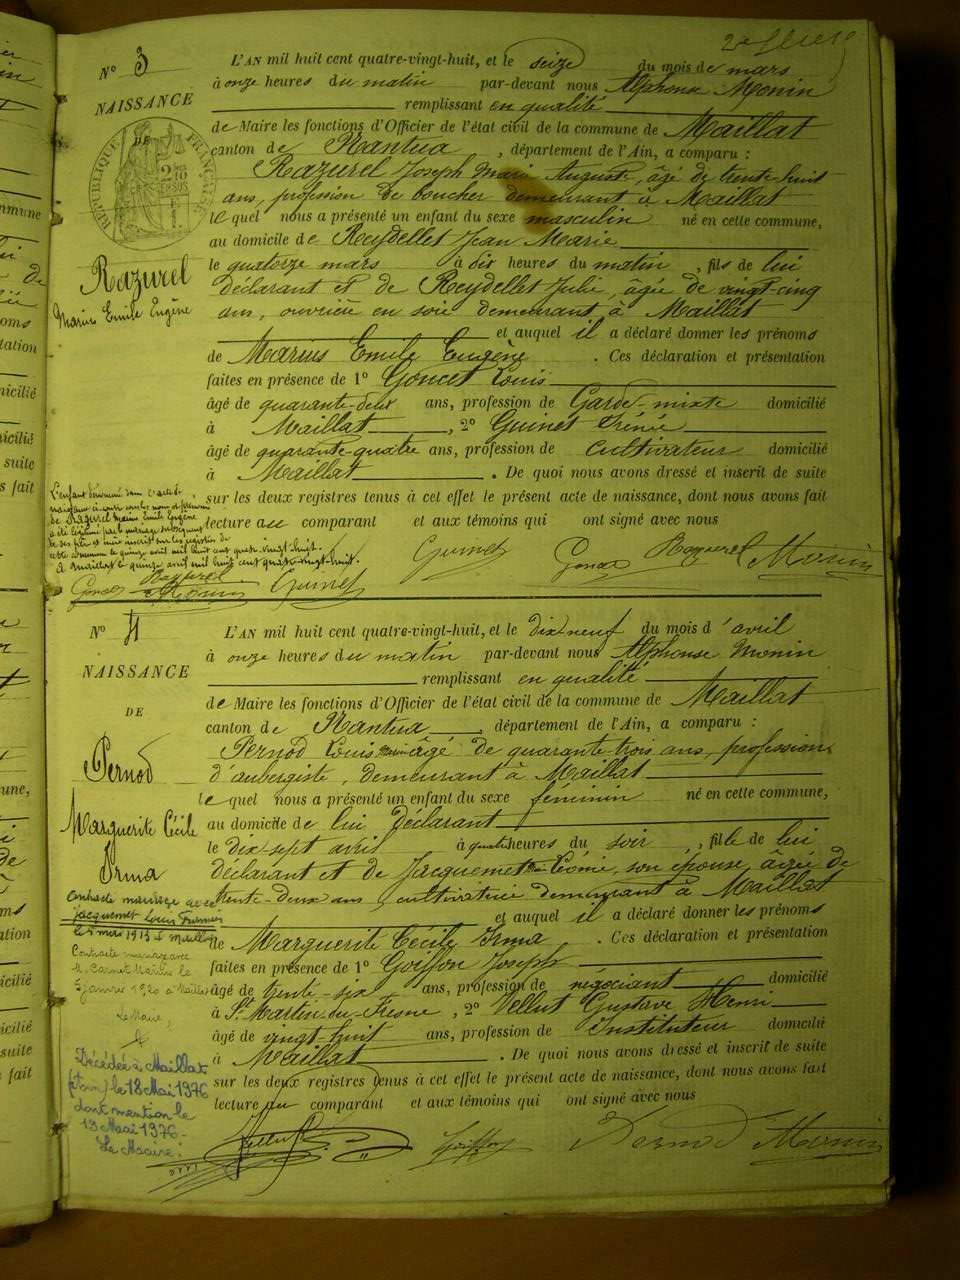 2e feuillet
N° 3
NAISSANCE
DE
RÉPUBLIQUE FRANÇAISE
Razurel
Marius Emile Eugène
L'AN mil huit cent quatre-vingt-huit, et le seize du mois de mars
à onze heures du matin par-devant nous Alphonse Monin
remplissant en qualité
de Maire les fonctions d'Officier de l'état civil de la commune de Maillat
canton de Nantua, département de l'Ain, a comparu :
Razurel Joseph Marie Auguste, âgé de trente-huit
ans, profession de boucher demeurant à Maillat
le quel nous a présenté un enfant du sexe masculin né en cette commune,
au domicile de Reydellet Jean Marie
le quatorze mars à dix heures du matin, fils de lui
déclarant et de Reydellet Julie, âgée de vingt-cinq
ans, ouvrière en soie demeurant à Maillat
et auquel il a déclaré donner les prénoms
de Marius Emile Eugène. Ces déclaration et présentation
faites en présence de 1° Goncet Louis
âgé de quarante-deux ans, profession de Garde-mixte domicilié
à Maillat, 2° Guinet Irénée
âgé de quarante-quatre ans, profession de cultivateur domicilié
à Maillat. De quoi nous avons dressé et inscrit de suite
sur les deux registres tenus à cet effet le présent acte de naissance, dont nous avons fait
lecture au comparant et aux témoins qui ont signé avec nous
Guinet Goncet Razurel Monin
L'enfant dénommé dans l'acte de
naissance ci-contre sous les noms et prénoms
de Razurel Marius Emile Eugène
a été légitimé par le mariage subséquent
de ses père et mère inscrit sur les registres de
cette commune le quinze avril mil huit cent quatre-vingt-huit.
A Maillat le quinze avril mil huit cent quatre-vingt-huit.
Goncet Razurel Monin Guinet
N° 4
NAISSANCE
DE
Pernod
Marguerite Cécile
Irma
L'AN mil huit cent quatre-vingt-huit, et le dix-neuf du mois d'avril
à onze heures du matin par-devant nous Alphonse Monin
remplissant en qualité
de Maire les fonctions d'Officier de l'état civil de la commune de Maillat
canton de Nantua, département de l'Ain, a comparu :
Pernod Louis Marie âgé de quarante-trois ans, profession
d'aubergiste, demeurant à Maillat
le quel nous a présenté un enfant du sexe féminin né en cette commune,
au domicile de lui déclarant
le dix-sept avril à quatre heures du soir, fille de lui
déclarant et de Jacquemet Léonie, son épouse, âgée de
trente-deux ans, cultivatrice demeurant à Maillat
et auquel il a déclaré donner les prénoms
de Marguerite Cécile Irma. Ces déclaration et présentation
faites en présence de 1° Goiffon Joseph
âgé de trente-six ans, profession de négociant domicilié
à St Martin-du-Fresne, 2° Vellut Gustave Henri
âgé de vingt-huit ans, profession de Instituteur domicilié
à Maillat. De quoi nous avons dressé et inscrit de suite
sur les deux registres tenus à cet effet le présent acte de naissance, dont nous avons fait
lecture au comparant et aux témoins qui ont signé avec nous
Vellut Goiffon Pernod Monin
Contracte mariage avec
Jacquemet Louis
le 1 mars 1913 à Maillat
Contracte mariage avec
M. Carmet Marius le
3 janvier 1920 à Maillat
Le Maire,
Décédée à Maillat
(Ain) le 18 Mai 1976
dont mention le
19 Mai 1976.
Le Maire: